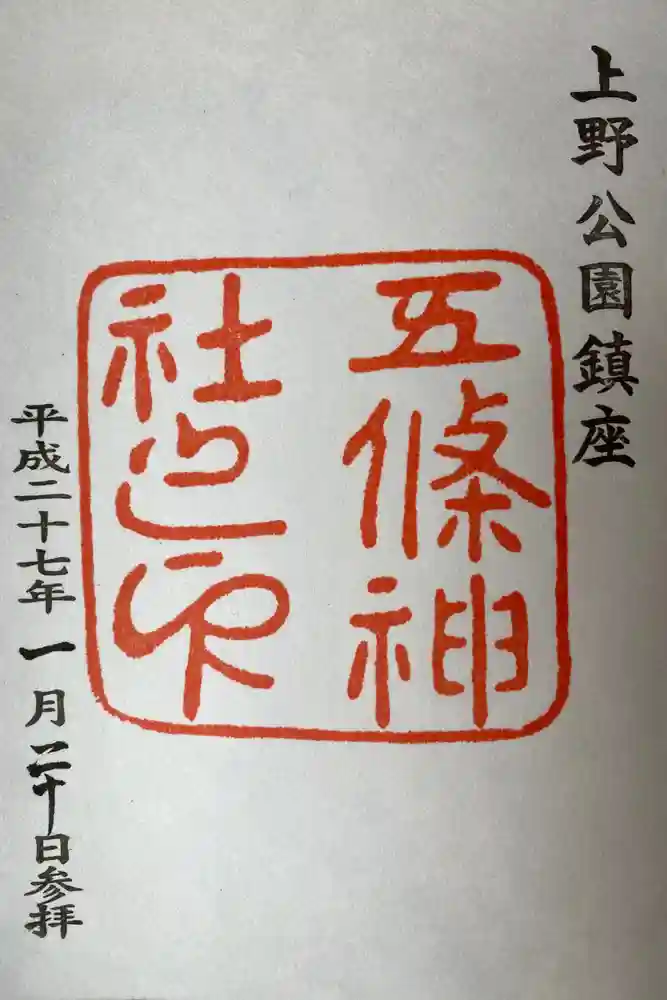 上野公園鎮座
五條神
社之印
平成二十七年一月二十日参拝